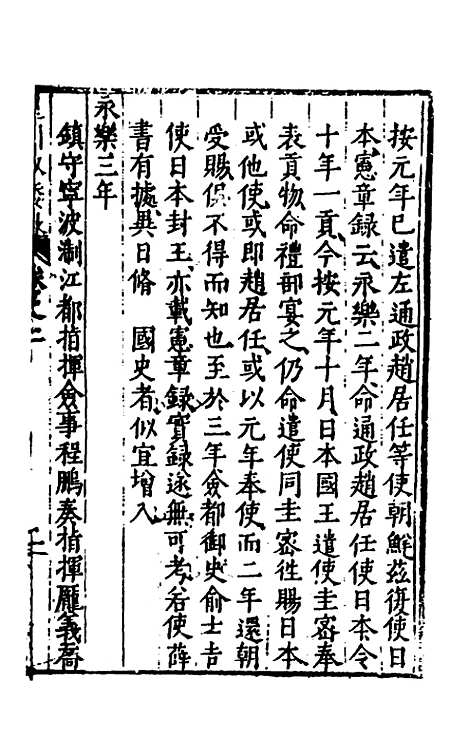 按元年已遣左通政趙居任等使朝鮮茲復使日
本憲章録云永樂二年命通政趙居任使日本令
十年一貢今按元年十月日本國王遣使圭密奉
表貢物命禮部宴之仍命遣使同圭密徃賜日本
或他使或即趙居任或以元年奉使而二年還朝
受賜俱不得而知也至於三年僉都御史俞士吉
使日本封王亦載憲章録實録遂無可考若使薛
書有據異日脩　國史者似宜增入
永樂三年
鎮守寧波浙江都指揮僉事程鵬奏指揮龎義喬